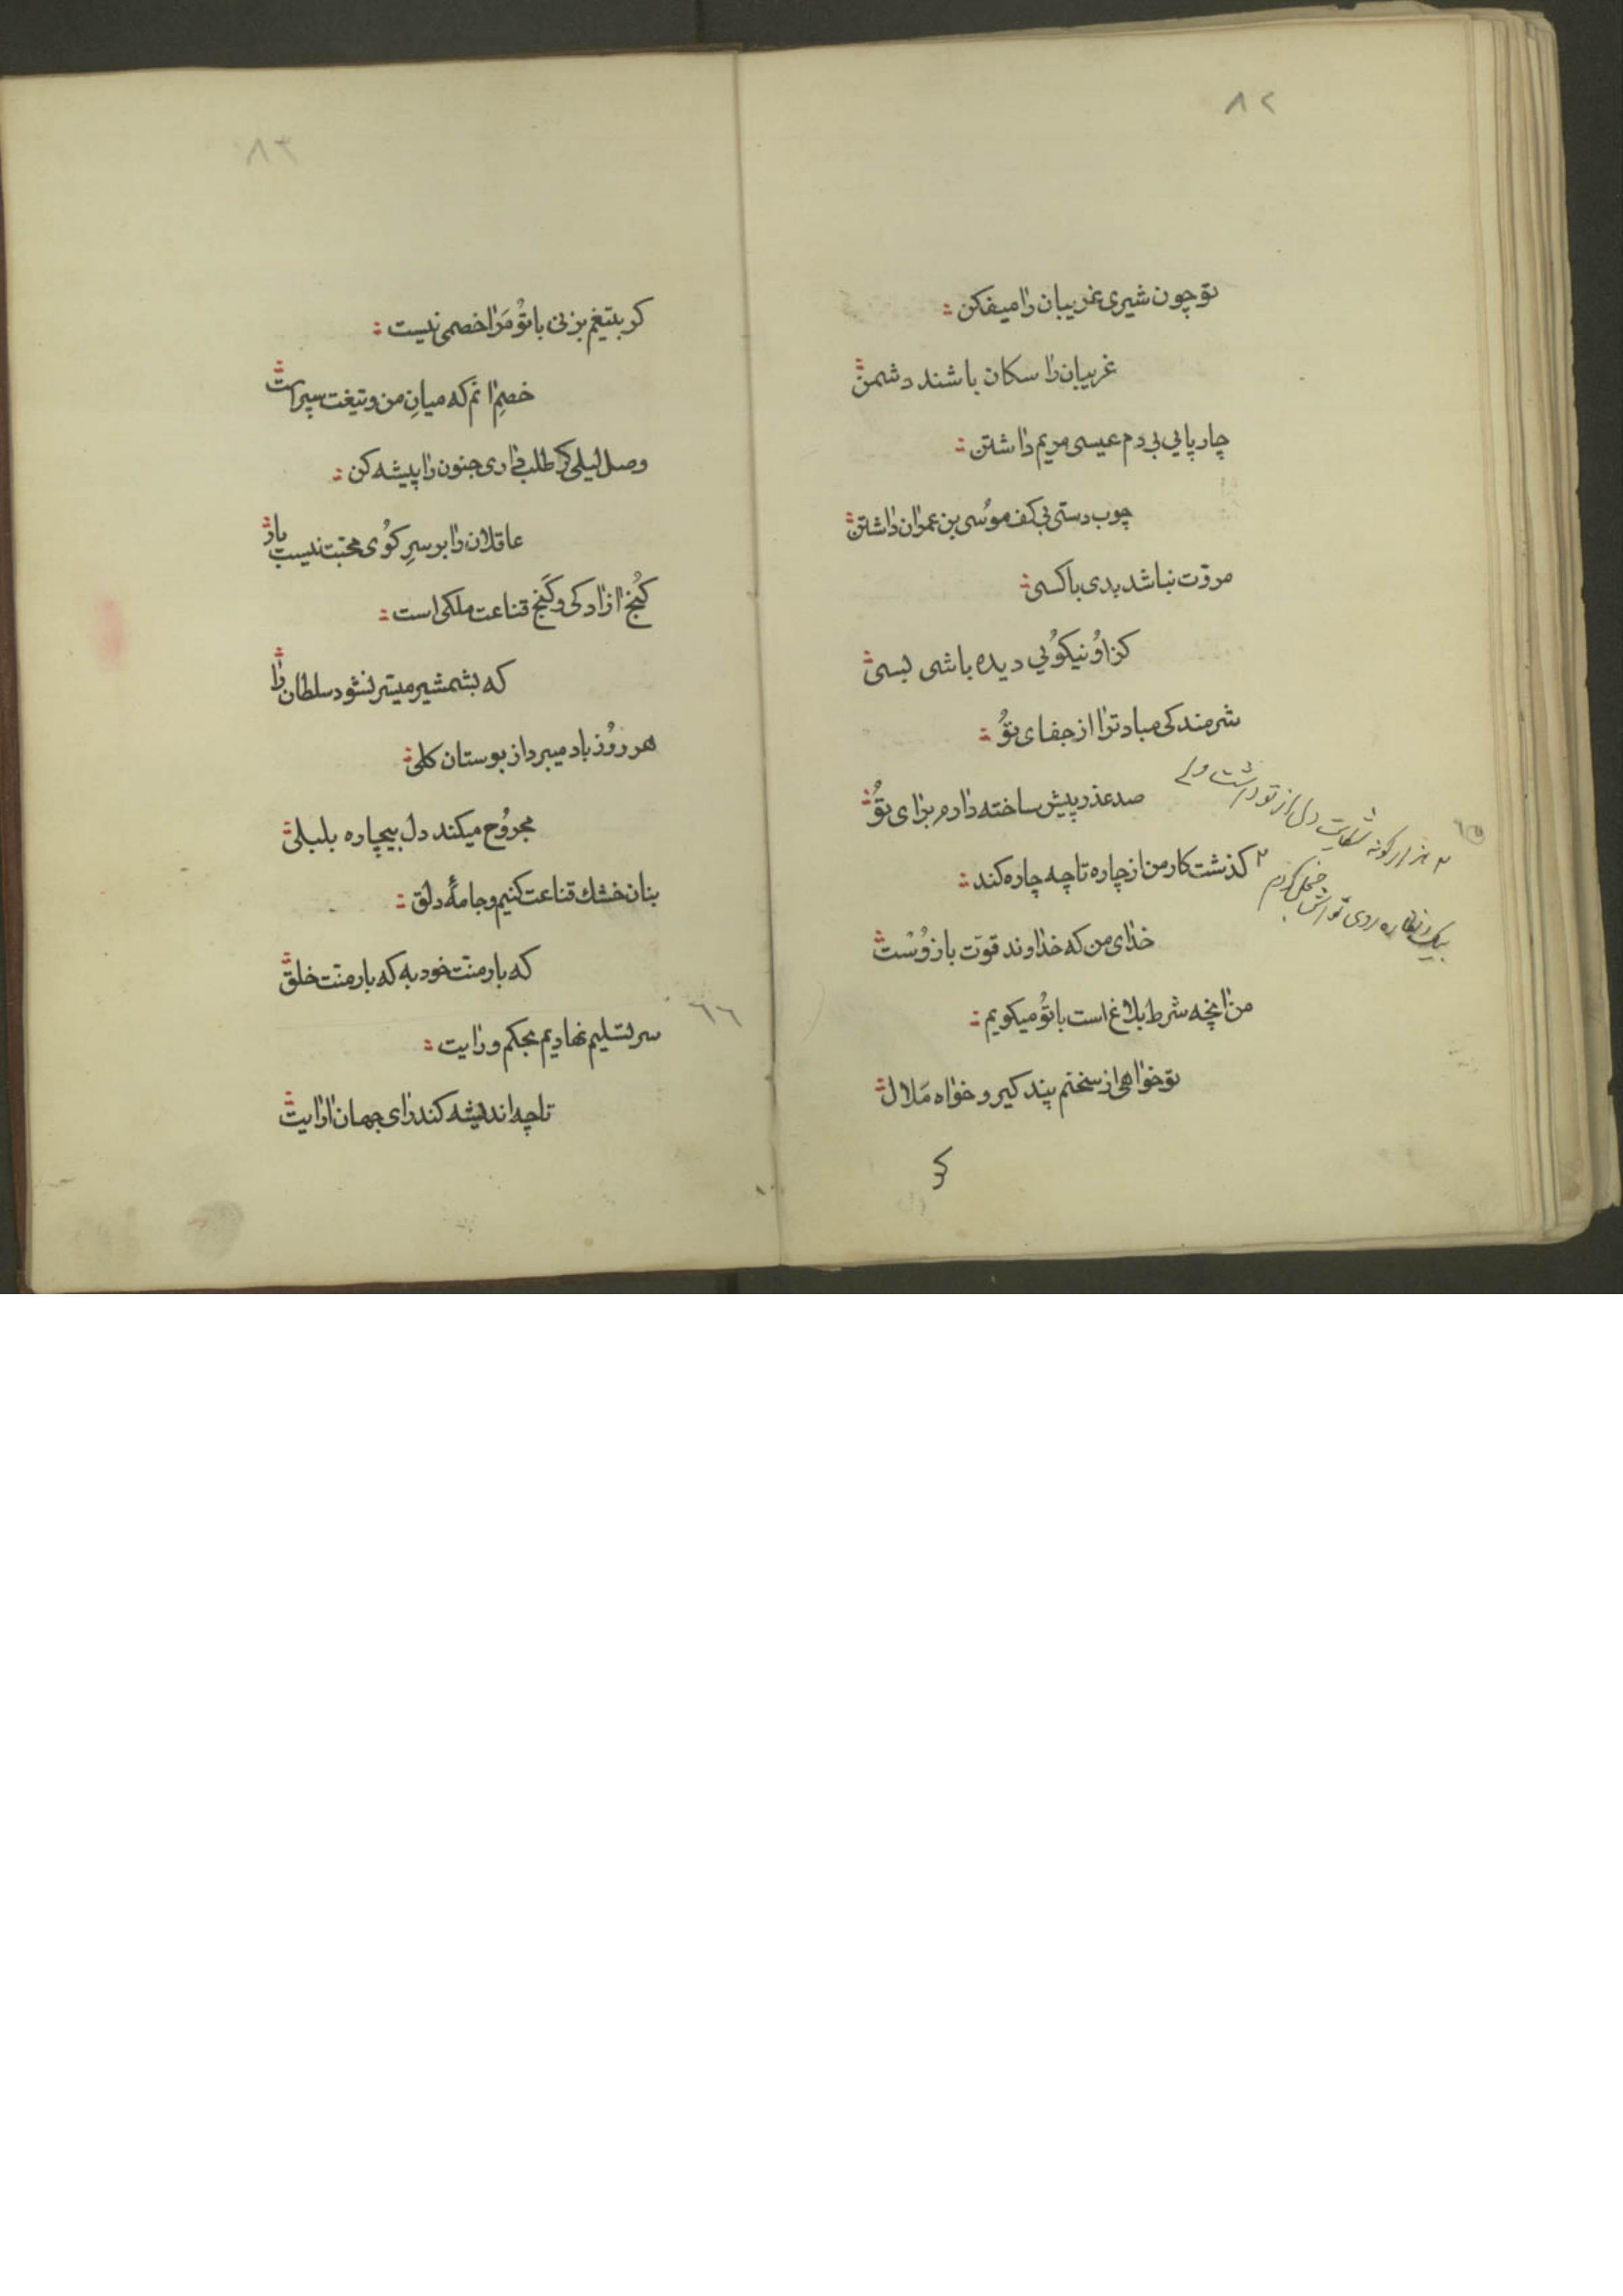 ٨٢
تو چون شیری غریبان را میفکن
غریبان را سکان باشند دشمن
چارپایی بی دم عیسی مریم داشتن
چوب دستی بی کف موسی بن عمران داشتن
مروّت نباشد بدی با کسی
کزاو نیکویی دیده باشی بسی
شرمندکی مباد ترا از جفای تو
صد عذر پیش ساخته دارم برای تو
٢ هزار کونه شکایت دل از تو داشت ولی
بیک نظاره روی تواش خجل کردم
٦٥
کذشت کار من از چاره تا چه چاره کند
خدای من که خداوند قوّت بازوست
من انچه شرط بلاغ است با تو میکویم
تو خواهی از سخنم پند کیر و خواه مَلال
کر
٨٣
کر بتیغم بزنی با تو مَرا خصمی نیست
خصمِ انم که میانِ من و تیغت سپر است
وصل لیلی کر طلب داری جنون را پیشه کن
عاقلان را بر سرِ کوی محبّت نیست بار
کُنج ازادکی و کَنج قناعت ملکی است
که بشمشیر میسّر نشود سلطان را
هر روز باد میبرد از بوستان کلی
مجروح میکند دل بیچاره بلبلی
بنان خشك قناعت کنیم و جامهٔ دلق
که بار منّت خود به که بار منّت خلق
٦٦
سر تسلیم نهادیم بحکم و رایت
تا چه اندیشه کند رای جهان ارایت